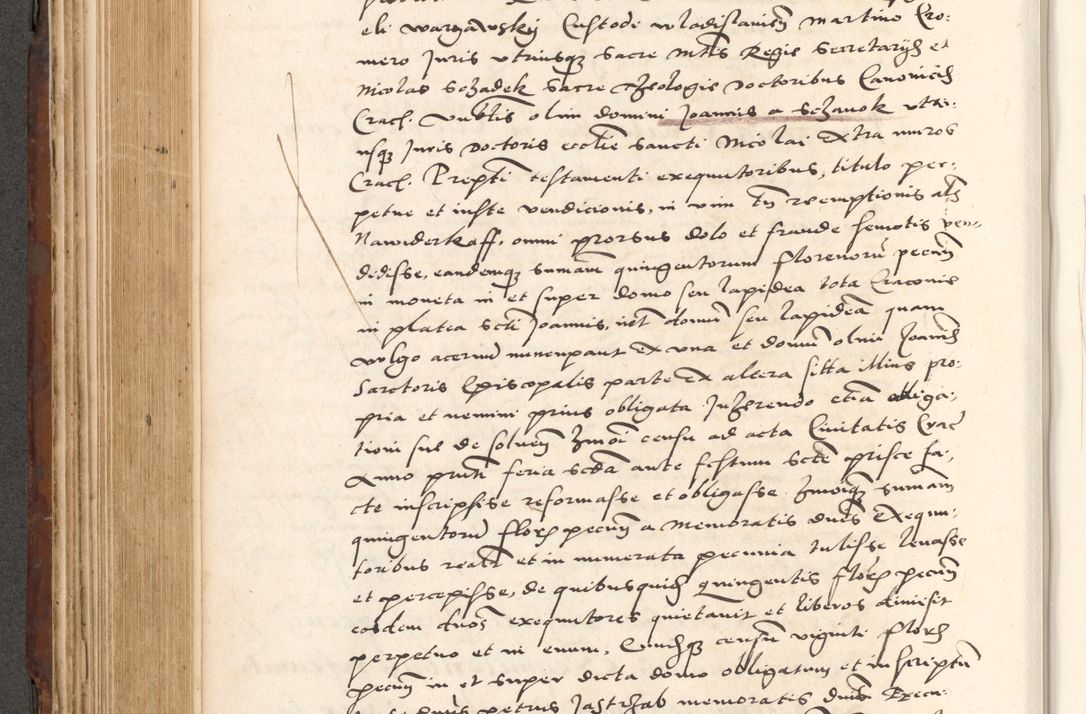 eli wargawskÿ Custodi wladislauien̄ Martino Cro:
mero Juris vtriusqꝫ Sacre Mtis Regie Secretarÿs et
Nicolao Schadek Sacre Theologie Doctoribus Canonicis
Crac̄. olim domini Joannis a Schanok vtri:
usqꝫ Juris Doctoris ecclie Sancti Nicolai Extra muros
Crac̄. Prepti testamenti exequutoribus, titulo per:
petue et iuste vendicionis, in vim tn̄ reemptionis als
Nawiderkaff, omni prorsus dolo et fraude semotis ven:
didisse, eandemqꝫ Sumam quingentorum florenorū pecun̄
in moneta in et super domo seu lapidea tota Cracouie
in platea Scti Joannis, int̄ domū seu lapideā quam
volgo acernū nuncupant Ex vna et domū olim Joannis
Sartoris Episcopalis parte Ex altera sitta illius pro:
pria et nemini prius obligata Inherendo etiā obliga:
tioni sue de soluen̄ censu ad acta Ciuitatis Crac̄
Anno feria scda ante festum Scte prisce fa:
cte inscripsisse reformasse et obligasse. Sumam
quingentorū flor̄ pecun̄ a Memoratis dnis Exequu:
toribus realr̄ et in numerata pecunia tulisse leuasse
et percepisse, de quibusquidē quingentis flor̄ pecun̄
eosdem dnos exequutores quietauit et liberos dimisit
perpetuo et in euum, censum viginti flor̄
pecun̄ in et super dicta domo obligatum et inscriptū
petrus Jastrzab memoratis dnis Execu: